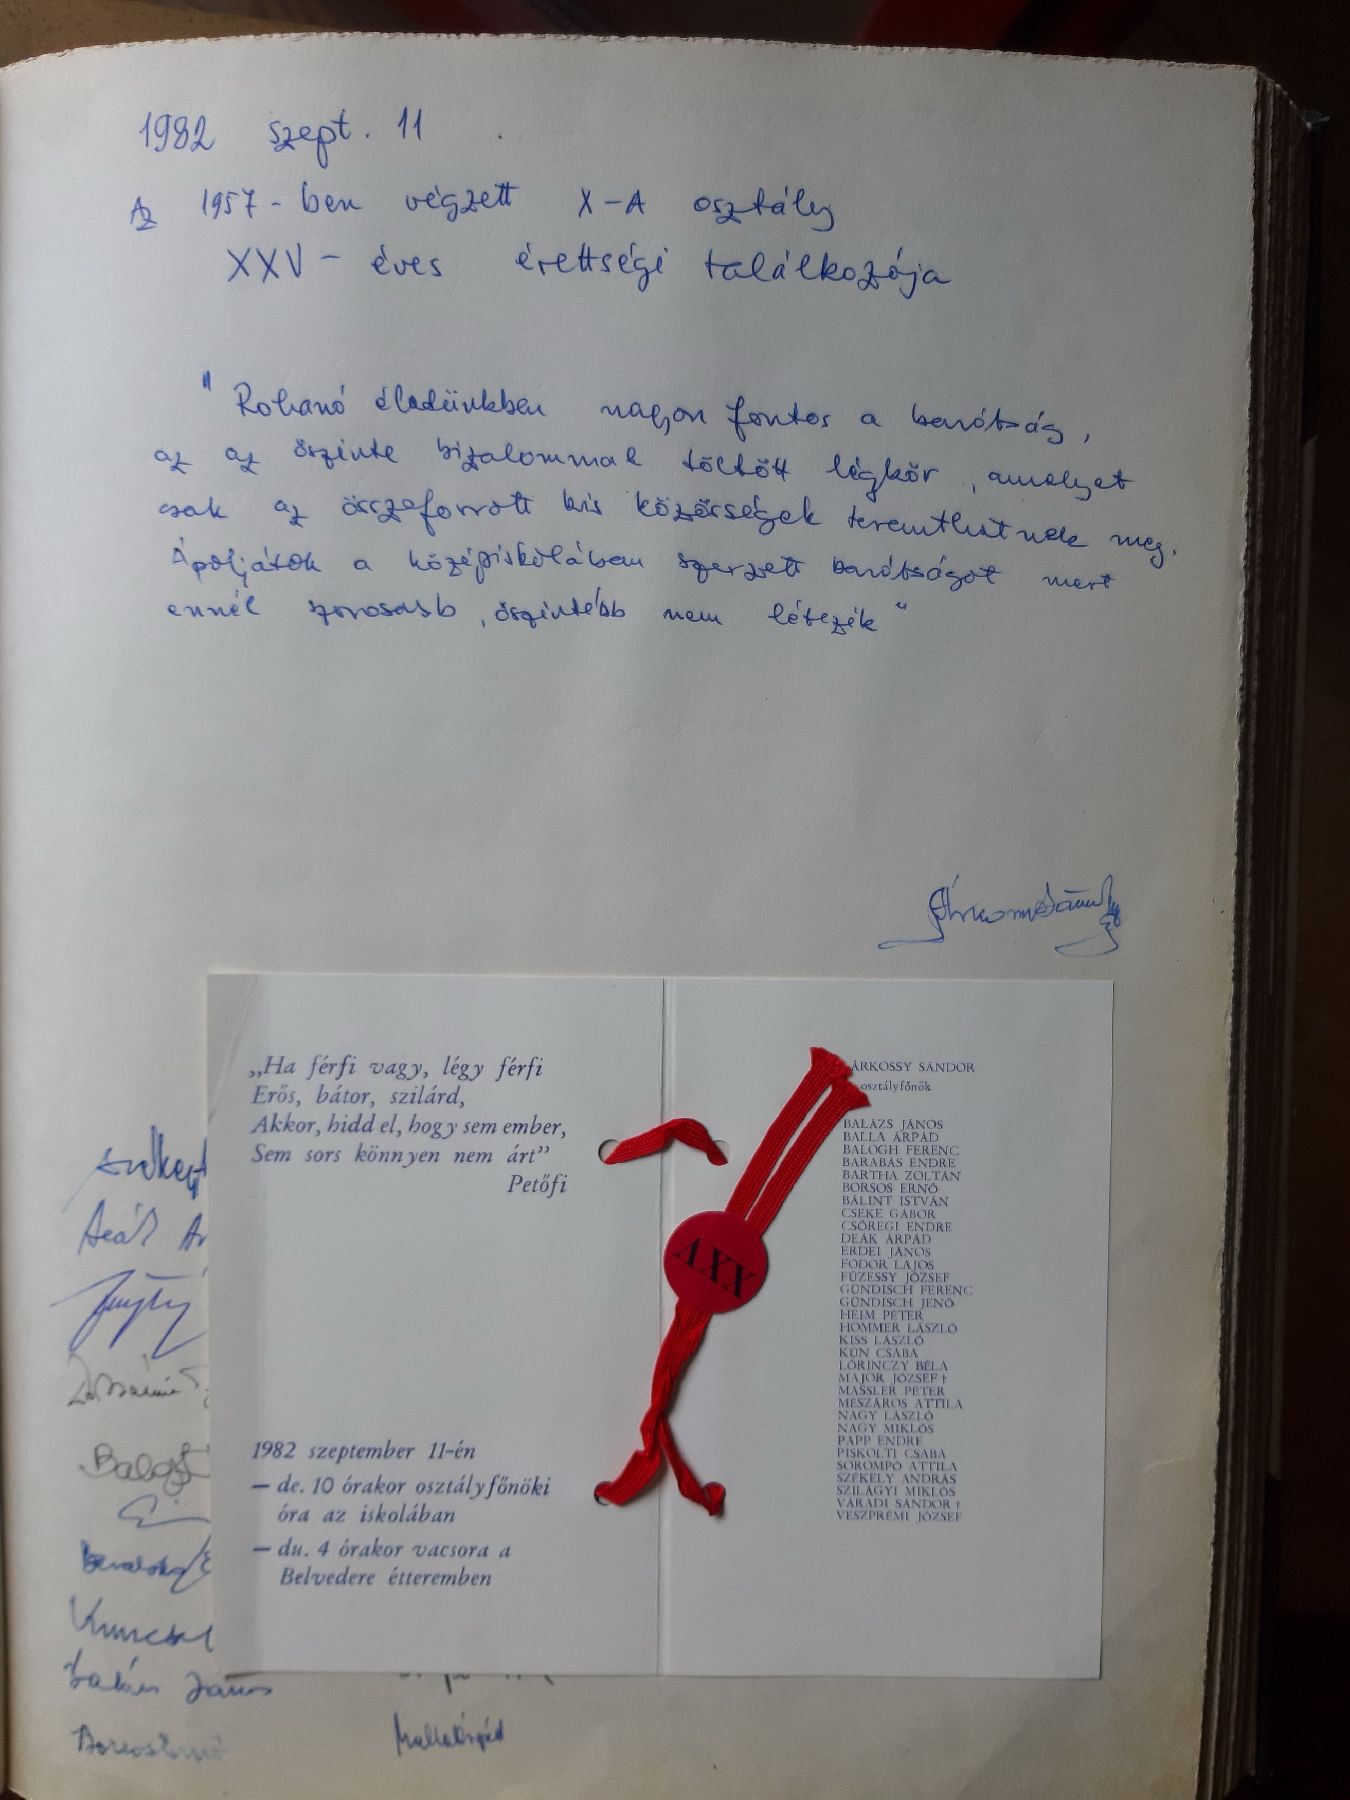 1982 szept. 11
Az 1957-ben végzett X-A osztály
XXV-éves érettségi találkozója
"Rohanó életünkben nagyon fontos a barátság,
az az őszinte bizalommal töltött légkör, amelyet
csak az összeforrott kis közösségek teremthetnek meg.
Ápoljátok a középiskolában szerzett barátságot mert
ennél szorosabb, őszintébb nem létezik"
„Ha férfi vagy, légy férfi
Erős, bátor, szilárd,
Akkor, hidd el, hogy sem ember,
Sem sors könnyen nem árt”
Petőfi
1982 szeptember 11-én
— de. 10 órakor osztályfőnöki
óra az iskolában
— du. 4 órakor vacsora a
Belvedere étteremben
XXV
ÁRKOSSY SÁNDOR
osztályfőnök
BALÁZS JÁNOS
BALLA ÁRPÁD
BALOGH FERENC
BARABÁS ENDRE
BARTHA ZOLTÁN
BORSOS ERNŐ
BÁLINT ISTVÁN
CSEKE GÁBOR
CSŐREGI ENDRE
DEÁK ÁRPÁD
ERDEI JÁNOS
FODOR LAJOS
FÜZESSY JÓZSEF
GÜNDISCH FERENC
GÜNDISCH JENŐ
HEIM PÉTER
HOMMER LÁSZLÓ
KISS LÁSZLÓ
KÚN CSABA
LŐRINCZY BÉLA
MAJOR JÓZSEF †
MASSLER PÉTER
MÉSZÁROS ATTILA
NAGY LÁSZLÓ
NAGY MIKLÓS
PAPP ENDRE
PISKOLTI CSABA
SOROMPÓ ATTILA
SZÉKELY ANDRÁS
SZILÁGYI MIKLÓS
VÁRADI SÁNDOR †
VESZPRÉMI JÓZSEF
Deák Ár
Balogh
Kun Csab
Balázs János
Borsos Ernő
Balla Árpád